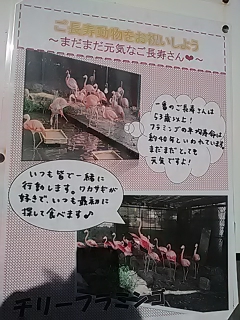 ご長寿動物をお祝いしよう
～まだまだ元気なご長寿さん❤～
一番のご長寿さんは
53歳以上！
フラミンゴの平均寿命は
約40年といわれています
まだまだとっても
元気ですよ！
いつも皆で一緒に
行動します。ワカサギが
好きで、いつも最初に
探して食べます♪
チリーフラミンゴ